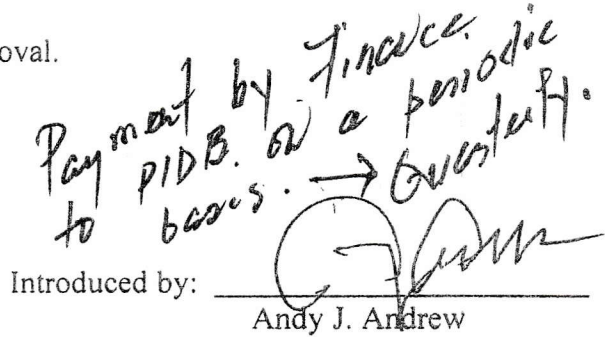 oval.
Payment by Finance
to PIDB. on a periodic
bases. → Quarterly.
Introduced by:
Andy J. Andrew